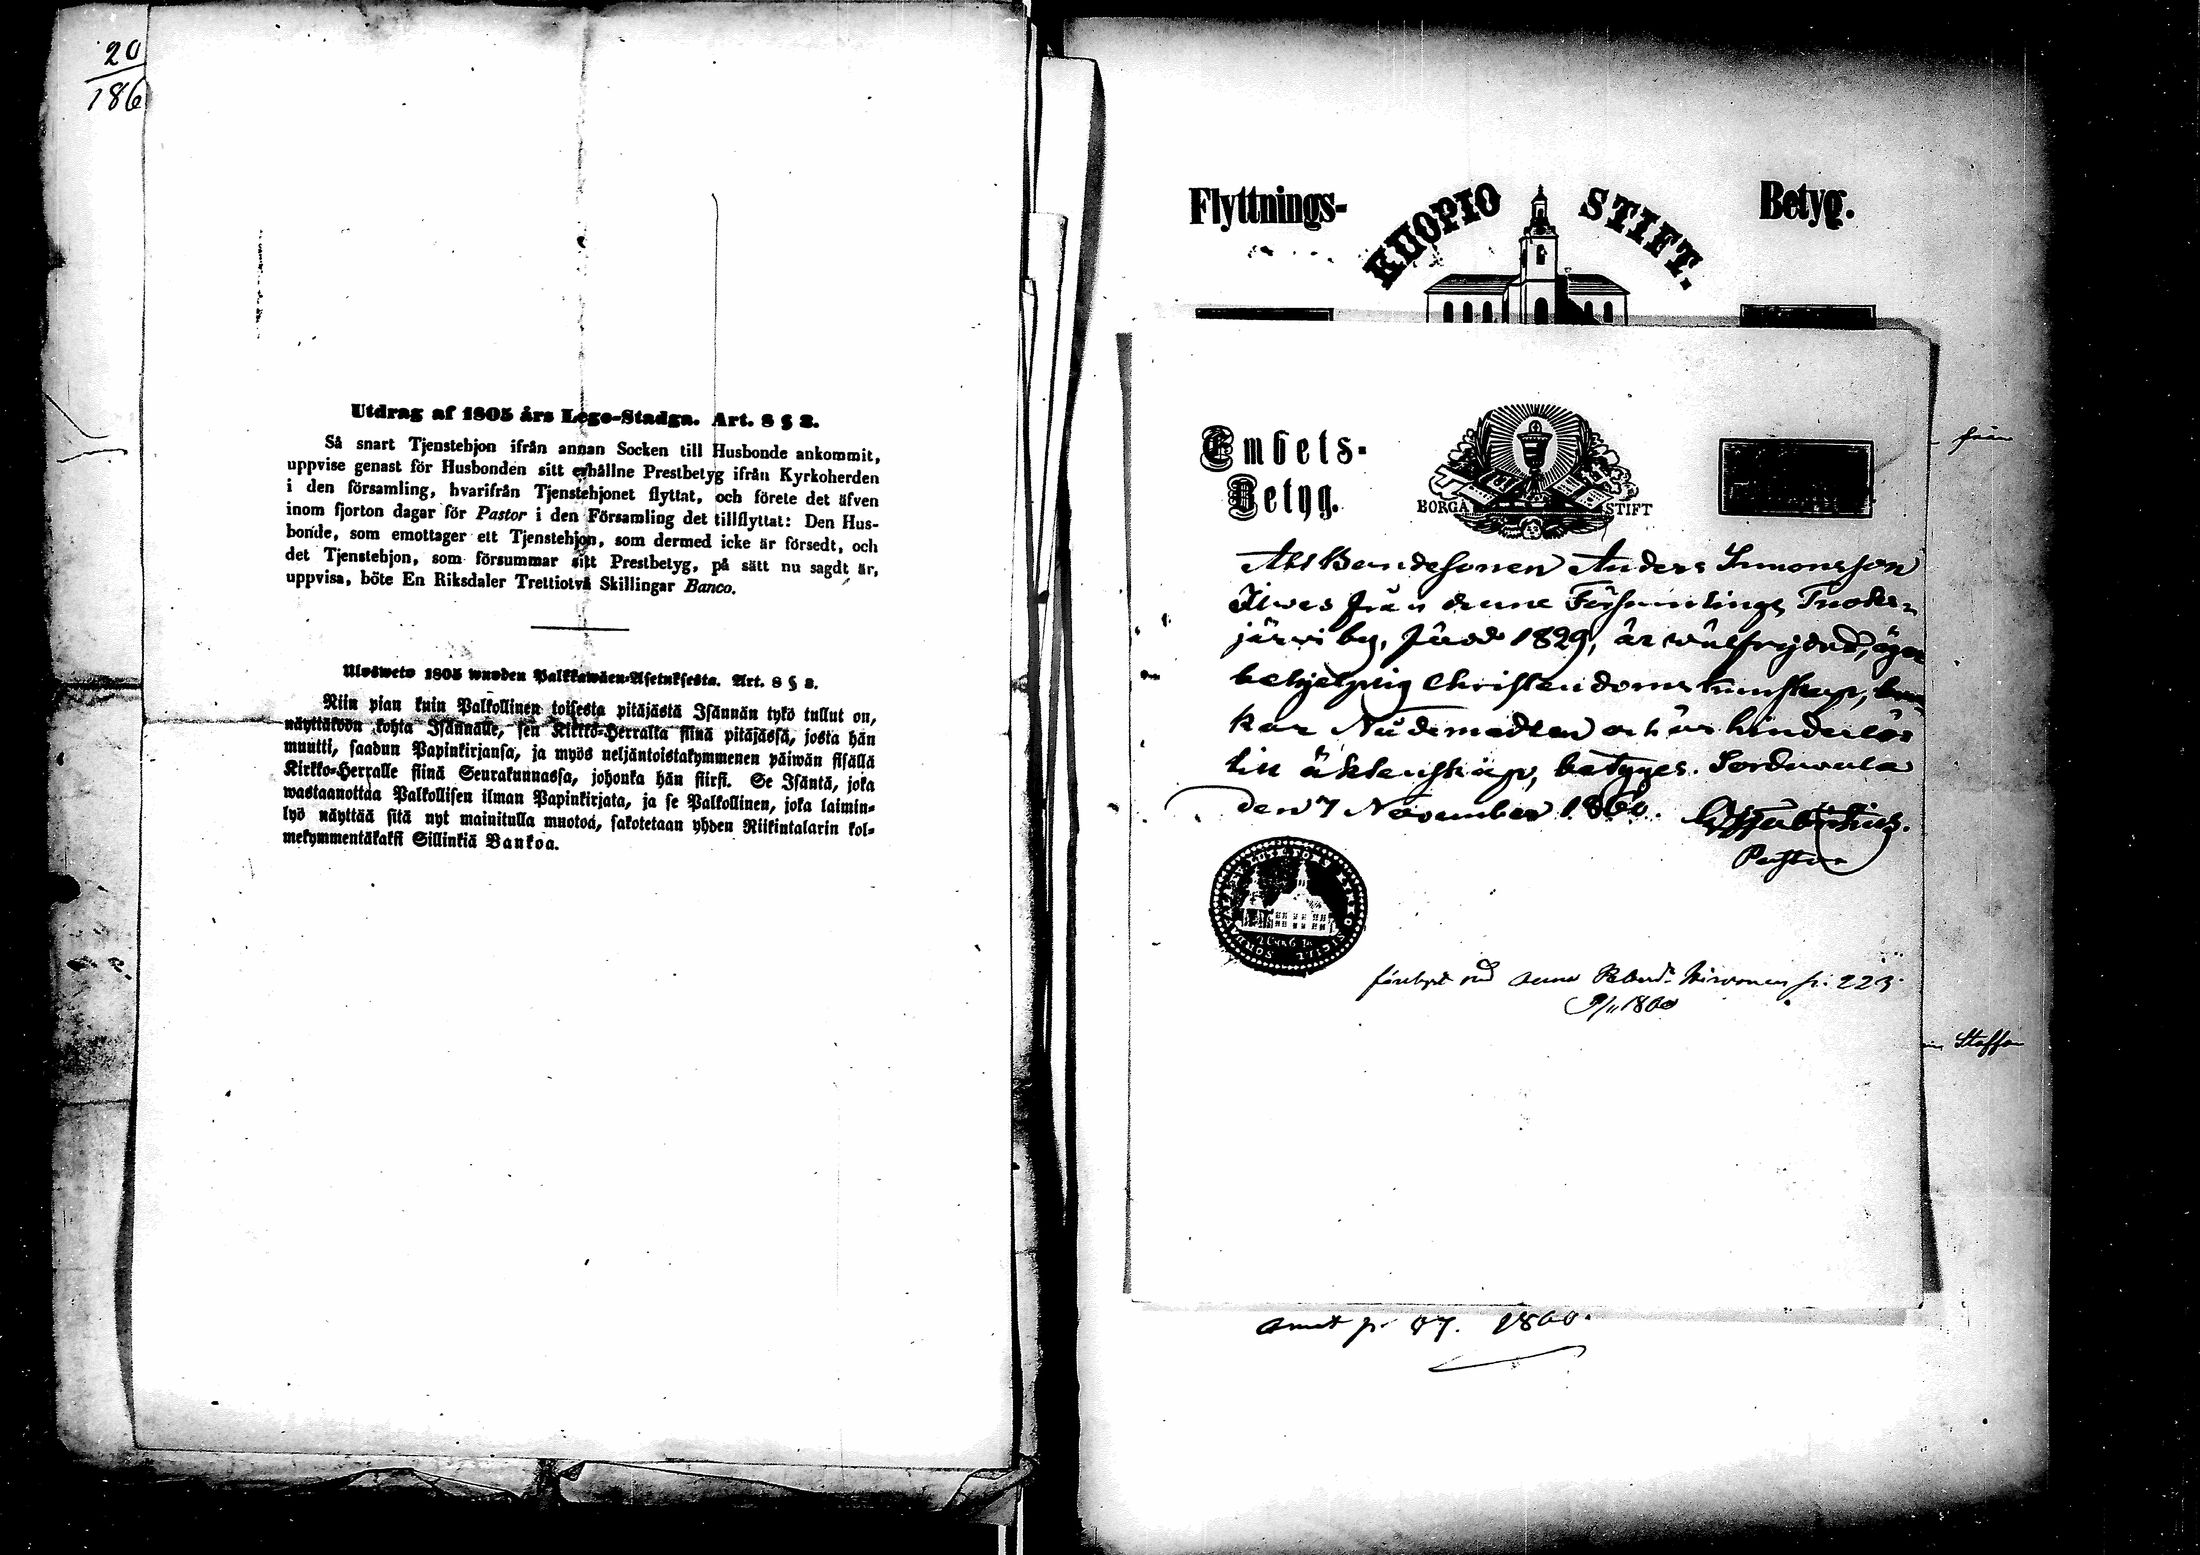 20
186
Utdrag af 1805 års Lego-Stadga. Art. 8 § 2.
Så snart Tjenstehjon ifrån annan Socken till Husbonde ankommit,
uppvise genast för Husbonden sitt erhållne Prestbetyg ifrån Kyrkoherden
i den församling, hvarifrån Tjenstehjonet flyttat, och förete det äfven
inom fjorton dagar för Pastor i den Församling det tillflyttat: Den Hus-
bonde, som emottager ett Tjenstehjon, som dermed icke är försedt, och
det Tjenstehjon, som försummar sitt Prestbetyg, på sätt nu sagdt är,
uppvisa, böte En Riksdaler Trettiotvå Skillingar Banco.
Ulosweto 1805 wuoden Palkkawäen-Asetuksesta. Art. 8 § 2.
Niin pian kuin Palkollinen toisesta pitäjästä Isännän tykö tullut on,
näyttäköön kohta Isännälle, sen Kirkko-Herralta siinä pitäjässä, josta hän
muutti, saadun Papinkirjansa, ja myös neljäntoistakymmenen päiwän sisällä
Kirkko-Herralle siinä Seurakunnassa, johonka hän siirsi. Se Isäntä, joka
wastaanottaa Palkollisen ilman Papinkirjata, ja se Palkollinen, joka laimin-
lyö näyttää sitä nyt mainitulla muotoa, sakotetaan yhden Riikintalarin kol-
mekymmentäkaksi Sillinkiä Bankoa.
Flyttnings- KUOPIO STIFT. Betyg.
Embets-
Betyg.
BORGÅ STIFT
från
Att Bondesonen Anders Simonsson
Ilwes från denne Församlings Tuoks-
järwi by, född 1829, är wälfrejdad, äger
behjelplig Christendoms kunskap, bru-
kar Nådemedlen och är hinderlös
till äktenskap, betyges. Sordawala
den 7 November 1860.
Pastor
Anna 223
9/11 1860
Staffan
p. 87. 1860.